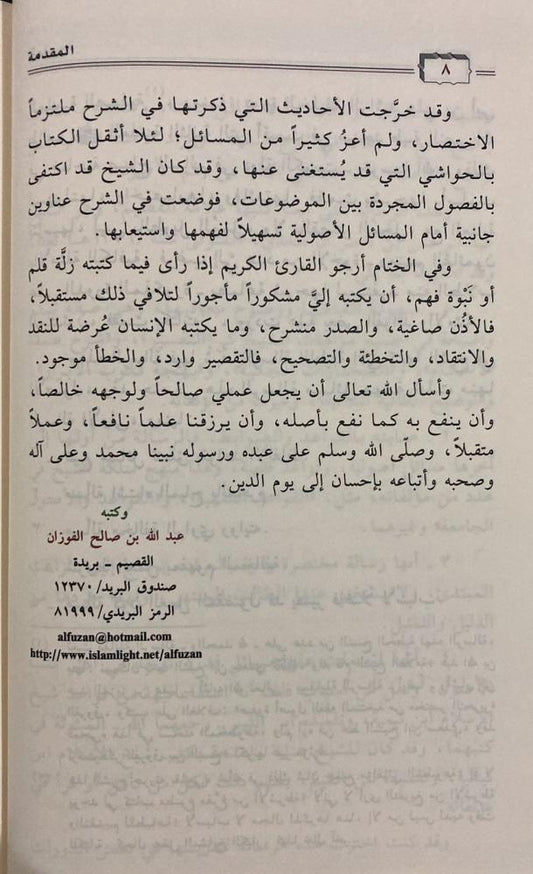 المقدمة
٨
وقد خرَّجت الأحاديث التي ذكرتها في الشرح ملتزماً
الاختصار، ولم أعزُ كثيراً من المسائل؛ لئلا أثقل الكتاب
بالحواشي التي قد يُستغنى عنها، وقد كان الشيخ قد اكتفى
بالفصول المجردة بين الموضوعات، فوضعت في الشرح عناوين
جانبية أمام المسائل الأصولية تسهيلاً لفهمها واستيعابها.
وفي الختام أرجو القارئ الكريم إذا رأى فيما كتبته زلَّة قلم
أو نَبْوة فهم، أن يكتبه إليَّ مشكوراً مأجوراً لتلافي ذلك مستقبلاً،
فالأذُن صاغية، والصدر منشرح، وما يكتبه الإنسان عُرضة للنقد
والانتقاد، والتخطئة والتصحيح، فالتقصير وارد، والخطأ موجود.
وأسأل الله تعالى أن يجعل عملي صالحاً ولوجهه خالصاً،
وأن ينفع به كما نفع بأصله، وأن يرزقنا علماً نافعاً، وعملاً
متقبلاً، وصلّى الله وسلم على عبده ورسوله نبينا محمد وعلى آله
وصحبه وأتباعه بإحسان إلى يوم الدين.
وكتبه
عبد الله بن صالح الفوزان
القصيم - بريدة
صندوق البريد/ ١٢٣٧٠
الرمز البريدي/ ٨١٩٩٩
alfuzan@hotmail.com
http://www.islamlight.net/alfuzan